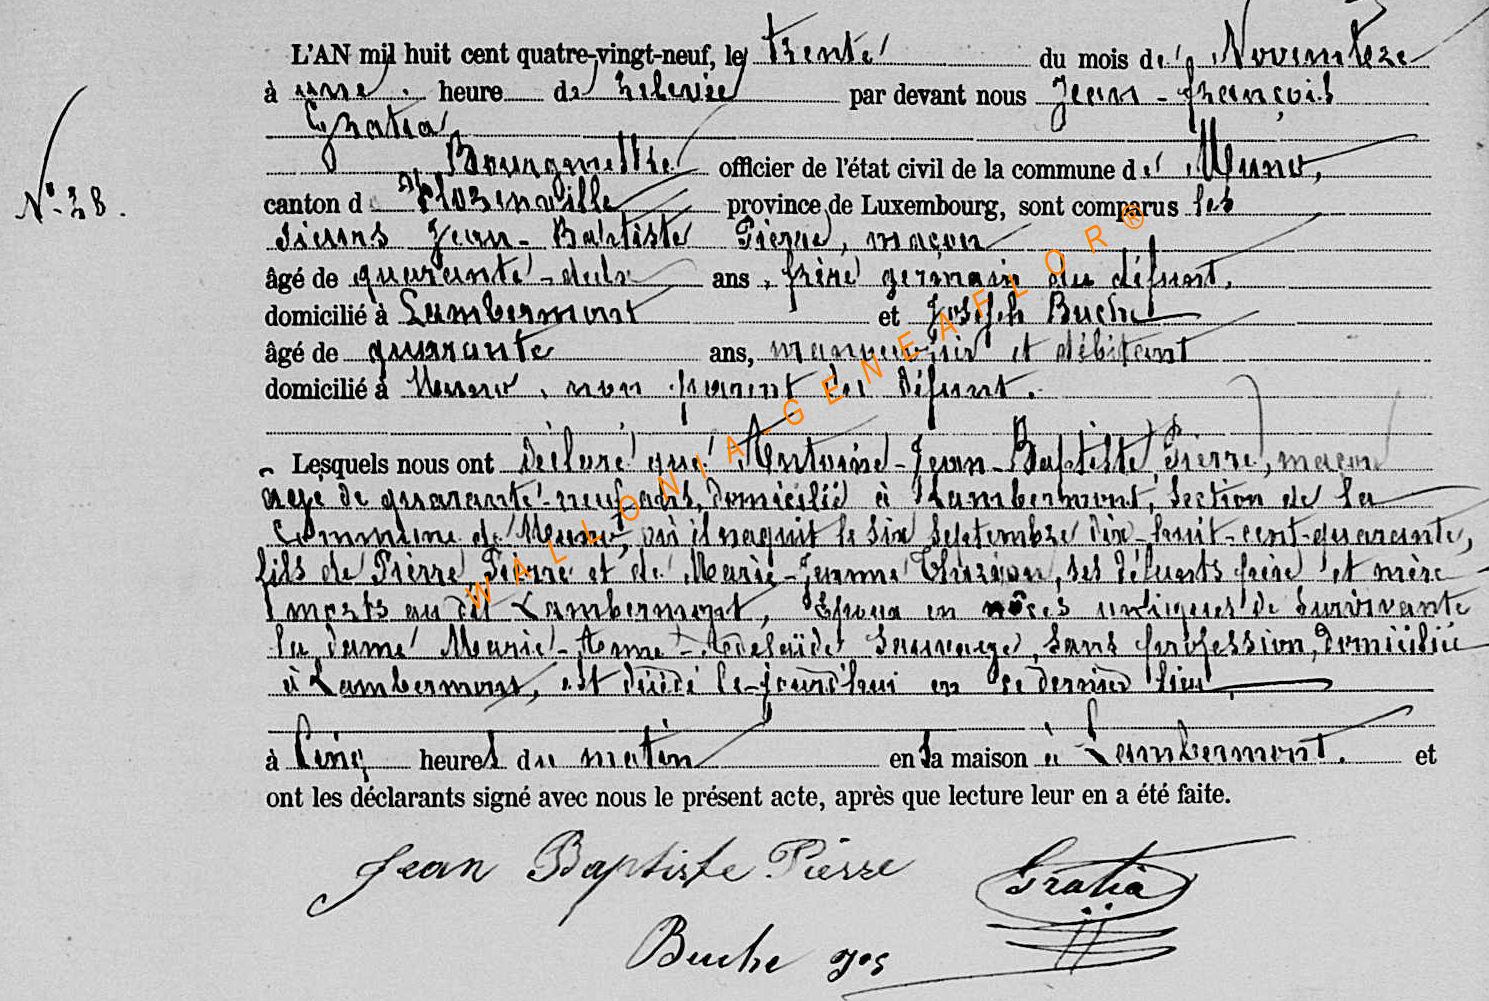 L'AN mil huit cent quatre-vingt-neuf, le trente du mois de Novembre
à une heure de relevée par devant nous Jean-François
Gratia
Bourgmestre officier de l'état civil de la commune de Muno,
N° 38.
canton de Florenville province de Luxembourg, sont comparus les
sieurs Jean-Baptiste Pierre, maçon
âgé de quarante-deux ans, frère germain du défunt,
domicilié à Lambermont et Joseph Buche
âgé de quarante ans, manouvrier et débitant
domicilié à Muno, non parent du défunt.
Lesquels nous ont déclaré que Antoine-Jean-Baptiste Pierre, maçon
âgé de quarante-neuf ans, domicilié à Lambermont, section de la
Commune de Muno, où il naquit le six Septembre dix-huit-cent-quarante,
fils de Pierre Pierre et de Marie-Jeanne Thirion, ses défunts père et mère
morts au dit Lambermont, Epoux en nôces uniques de survivante
la dame Marie-Anne-Adelaïde Sauvage, sans profession, domiciliée
à Lambermont, est décédé ce-jourd'hui en ce dernier lieu
à Cinq heures du matin en sa maison à Lambermont. et
ont les déclarants signé avec nous le présent acte, après que lecture leur en a été faite.
Jean Baptiste Pierre Gratia
Buche Jos
WALLONIA-GENEAFLOR®